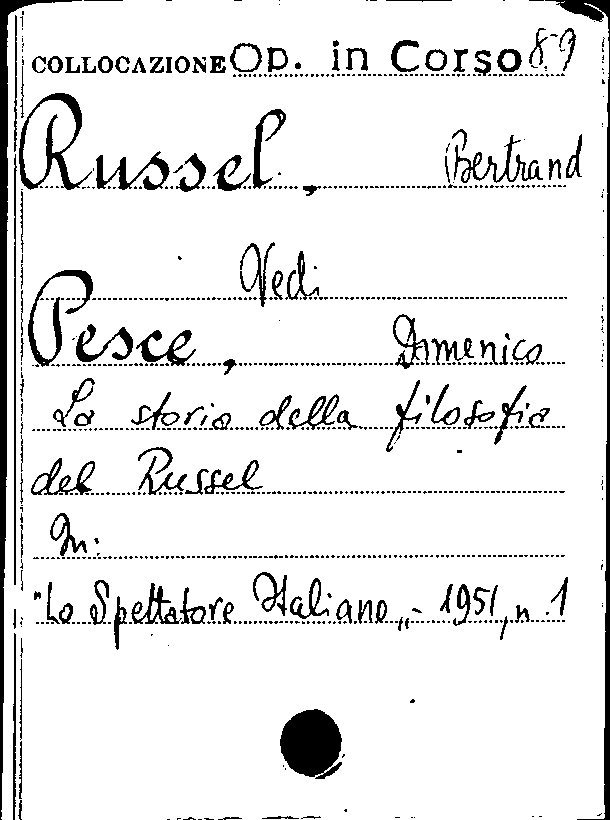 COLLOCAZIONE Op. in Corso 89
Russel, Bertrand
Vedi
Pesce, Domenico
La storia della filosofia
del Russel
In:
"Lo Spettatore Italiano„- 1951, n. 1